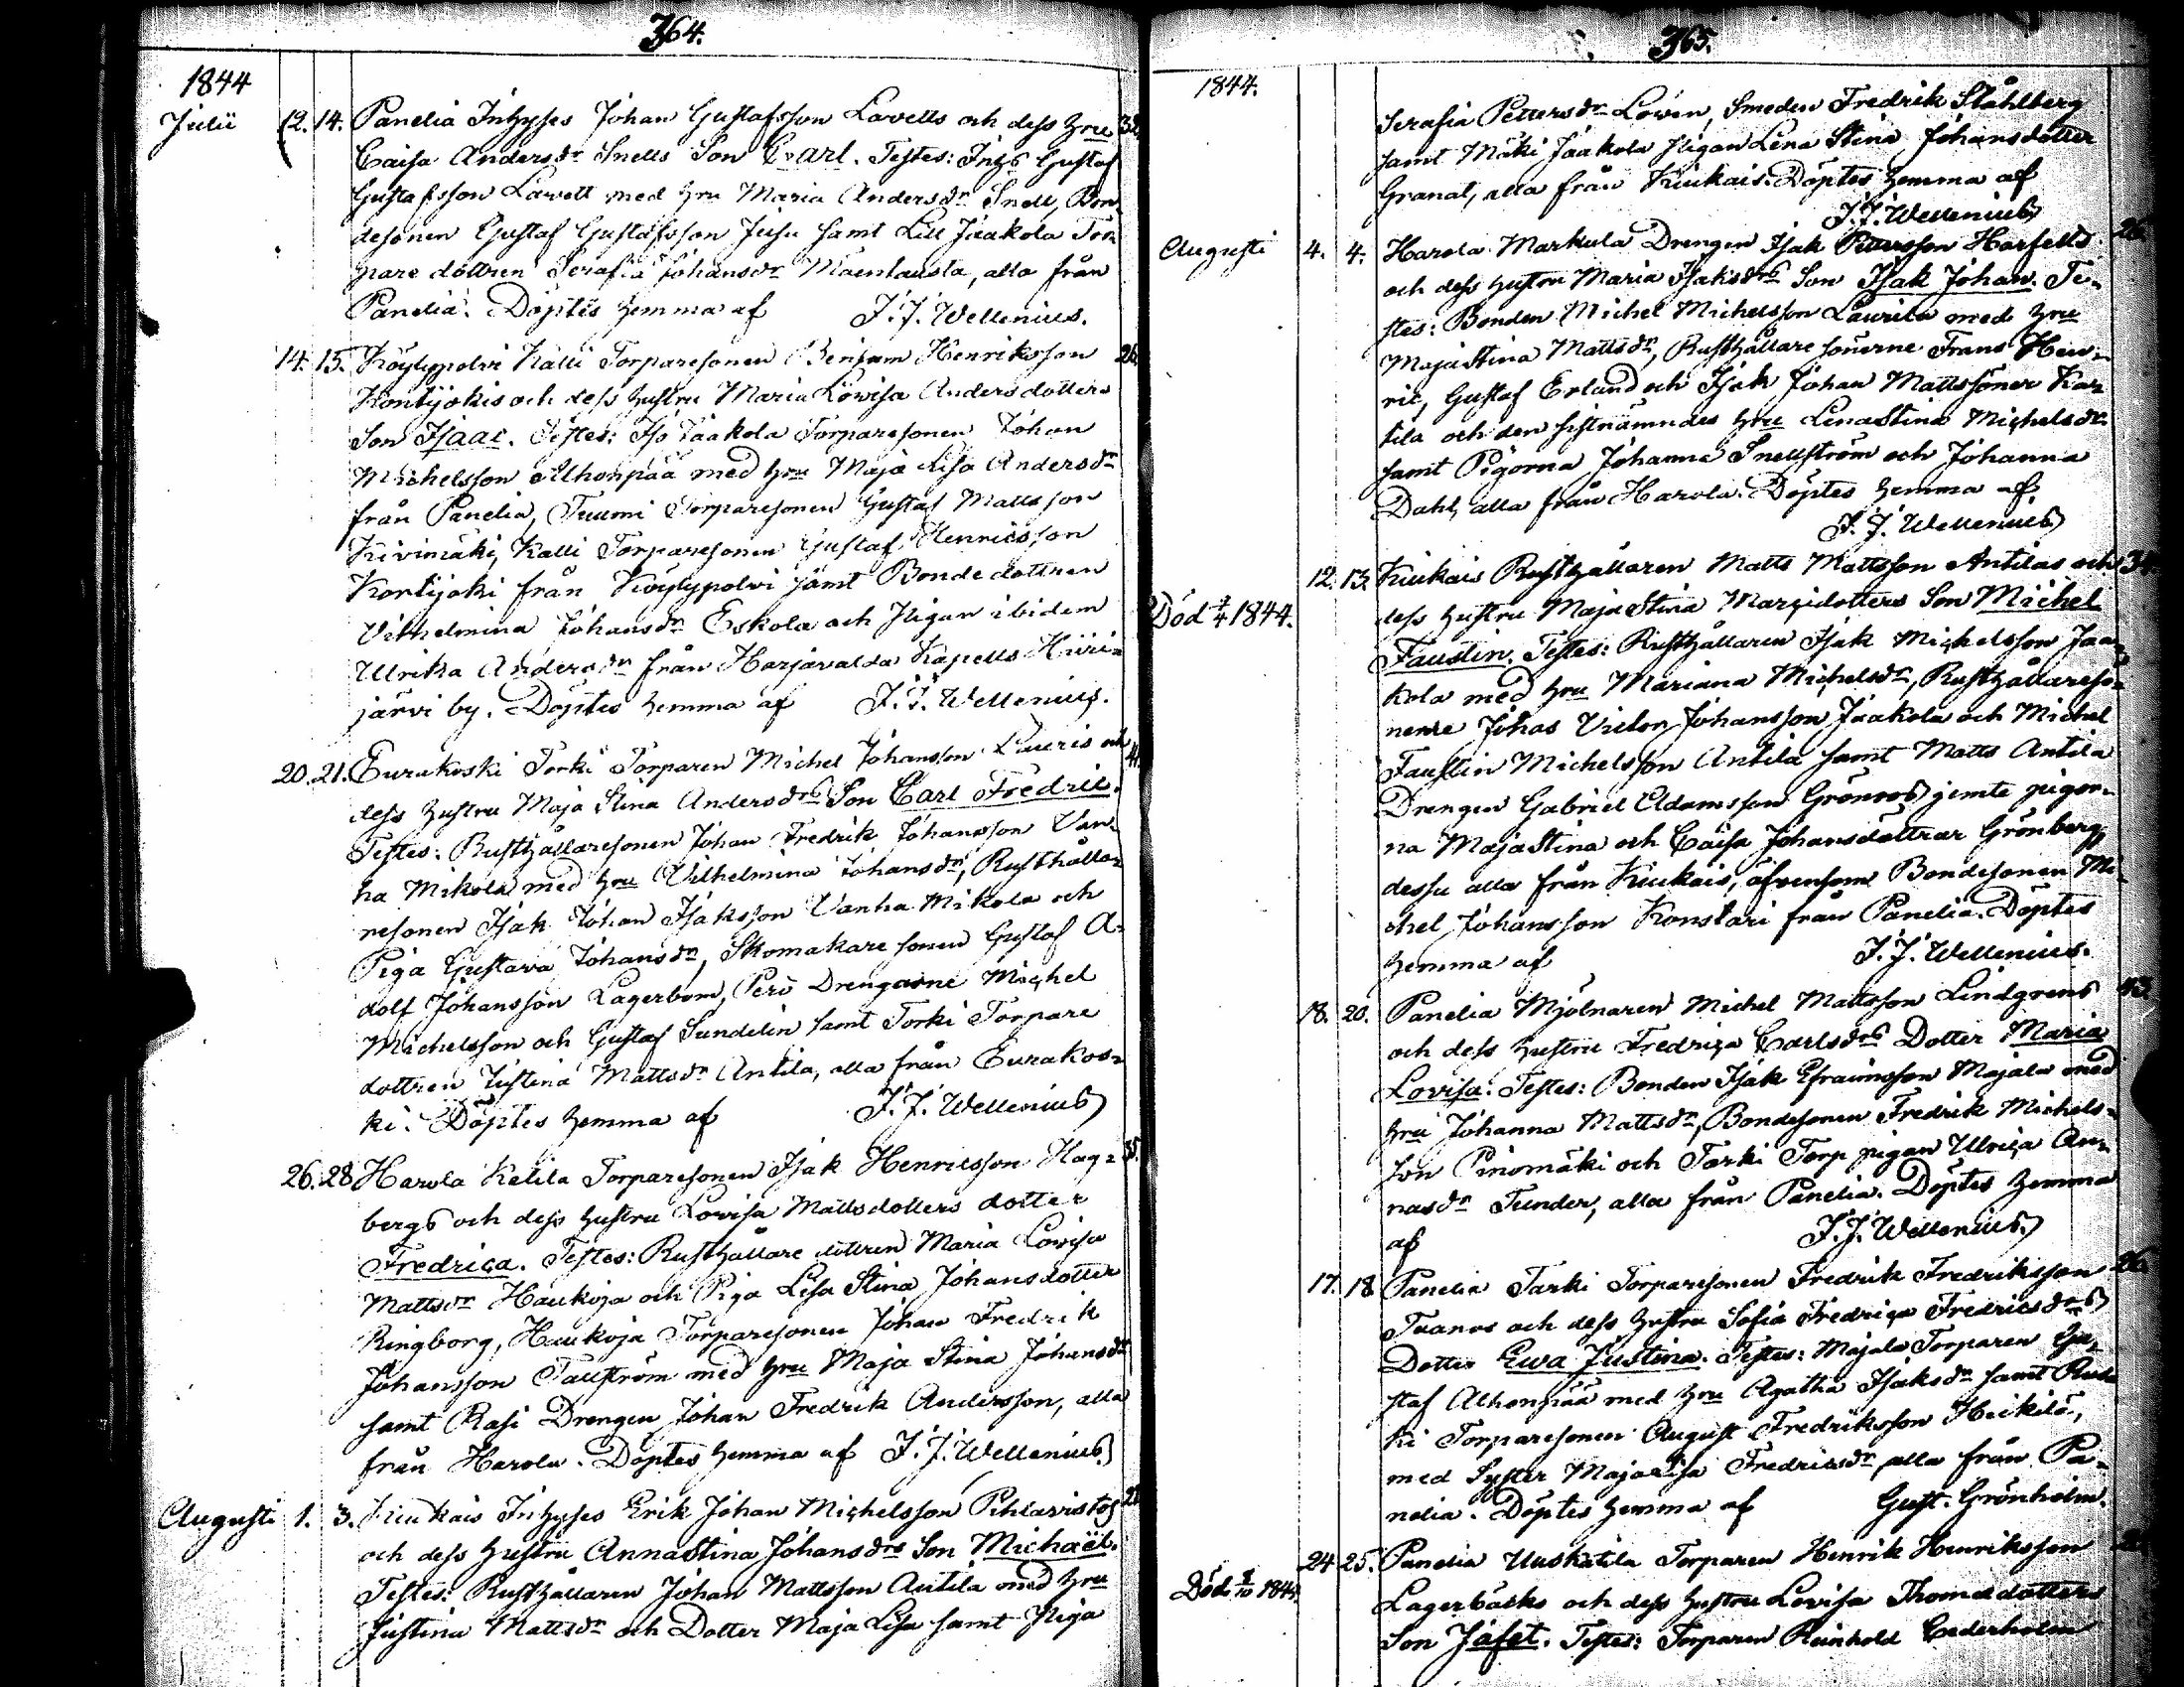 364.
1844
Julii 12. 14. Panelia Inhyses Johan Gustafsson Lavells och dess hru 32.
Caisa Andersdr Snells Son Carl. Testes: Inhs Gustaf
Gustafsson Lavell med hru Maria Andersdr Snell, Bon-
desonen Gustaf Gustafsson Jusu samt Lill Jaakola Tor-
pare dottren Serafia Johansdr Mäentausta, alla från
Panelia. Döptes hemma af J. J. Wellenius.
14. 15. Köylypolvi Kalli Torparesonen Benjam Henriksson 26.
Kontijokis och dess hustru Maria Lovisa Andersdotters
Son Isaac. Testes: Iso Jaakola Torparesonen Johan
Michelsson Alhonpää med hru Maja Lisa Andersdr
från Panelia, Tuumi Torparesonen Gustaf Mattsson
Kivimäki, Kalli Torparesonen Gustaf Henricsson
Kontijoki från Köylypolvi samt Bonde dottren
Vilhelmina Johansdr Eskola och Pigan ibidem
Ulrika Andersdr från Harjavalda Kapells Hiiri-
järvi by. Döptes hemma af J. J. Wellenius.
20. 21. Eurakoski Torki Torparen Michel Johansson Lauris och 41.
dess hustru Maja Stina Andersdrs Son Carl Fredric.
Testes: Rusthållaresonen Johan Fredrik Johansson Van-
ha Mikola med hru Vilhelmina Johansdr, Rusthålla-
resonen Isak Johan Isaksson Vanha Mikola och
Piga Gustava Johansdr, Skomakare sonen Gustaf A-
dolf Johansson Lagerbom, Pero Drengarne Michel
Michelsson och Gustaf Sundelin samt Torki Torpare
dottren Justina Mattsdr Antila, alla från Eurakos-
ki. Döptes hemma af J. J. Wellenius
26. 28. Harola Ketila Torparesonen Isak Henricsson Hag- 35.
bergs och dess hustru Lovisa Mattsdotters dotter
Fredrica. Testes: Rusthållare dottren Maria Lovisa
Mattsdr Haukoja och Piga Lisa Stina Johansdotter
Ringborg, Haukoja Torparesonen Johan Fredrik
Johansson Tallström med hru Maja Stina Johansdr
samt Rasi Drengen Johan Fredrik Andersson, alla
från Harola. Döptes hemma af J. J. Wellenius
Augusti 1. 3. Kiukais Inhyses Erik Johan Michelsson Pihlavistos
och dess hustru Anna Stina Johansdrs Son Michaël.
Testes: Rusthållaren Johan Mattsson Antila med hru
Justina Mattsdr och Dotter Maja Lisa samt Piga
365.
1844.
Serafia Pettersdr Löwen, Smeden Fredrik Ståhlberg
samt Mäki Jaakola Pigan Lena Stina Johansdotter
Granat, alla från Kiukais. Döptes hemma af
J. J. Wellenius
Augusti 4. 4. Harola Markula Drengen Isak Pettersson Harfelts 26.
och dess hustru Maria Isaksdrs Son Isak Johan. Te-
stes: Bonden Michel Michelsson Laurila med hru
Maja Stina Mattsdr, Rusthållare sönerne Frans Hen-
ric, Gustaf Erland och Isak Johan Mattssöner Kar-
tila och den sistnämndes hru Lena Stina Michelsdr
samt Pigorna Johanna Snellström och Johanna
Dahl, alla från Harola. Döptes hemma af
J. J. Wellenius
Död 1844.
12. 13. Kiukais Rusthållaren Matts Mattsson Antilas och 34
dess hustru Maja Stina Marcidotters Son Michel
Faustin. Testes: Rusthållaren Isak Michelsson Jaa-
kola med hru Mariana Michelsdr, Rusthållareso-
nerne Johas Victor Johansson Jaakola och Michel
Faustin Michelsson Antila samt Matts Antila
Drengen Gabriel Adamsson Grönroos jemte pigor-
na Maja Stina och Caisa Johansdöttrar Grönberg,
dessa alla från Kiukais, äfvensom Bondesonen Mi-
chel Johansson Konstari från Panelia. Döptes
hemma af J. J. Wellenius.
18. 20. Panelia Mjölnaren Michel Mattsson Lindgrens 43.
och dess hustru Fredrica Carlsdrs Dotter Maria
Lovisa. Testes: Bonden Isak Efraimsson Majala med
hru Johanna Mattsdr, Bondesonen Fredrik Michels-
son Pinomäki och Tarki Torp pigan Ulrica An-
nasdr Tunder, alla från Panelia. Döptes hemma
af J. J. Wellenius
17. 18 Panelia Tarki Torparesonen Fredrik Fredriksson 26.
Tuanos och dess hustru Sofia Fredrica Fredricsdrs
Dotter Ewa Justina. Testes: Majala Torparen Gu-
staf Alhonpää med hru Agatha Isaksdr samt
ki Torparesonen August Fredriksson Heikilä,
med Syster Maja Lisa Fredricsdr, alla från Pa-
nelia. Döptes hemma af Gust. Grönholm.
24 25. Panelia Uuskatila Torparen Henrik Henriksson
Död 1844.
Lagerbäcks och dess hustru Lovisa Thomædotters
Son Jafet. Testes: Torparen Reinhold Cederholm